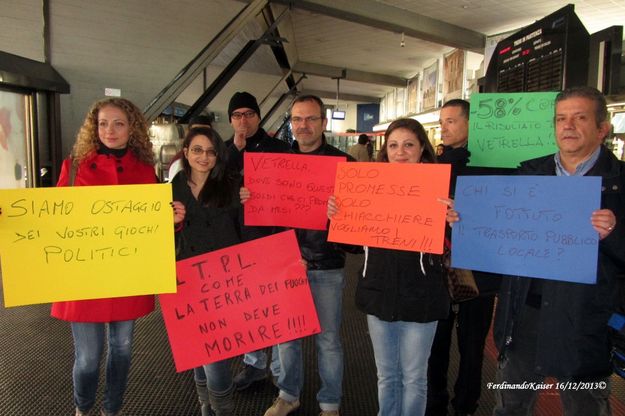 TRENI IN PARTENZA
58%
IL RISULTATO
VETRELLA!
SIAMO OSTAGGIO
DEI VOSTRI GIOCHI
POLITICI
VETRELLA,
DOVE SONO QUESTI
SOLDI CHE
DA MESI???
SOLO
PROMESSE
SOLO
CHIACCHIERE
VOGLIAMO I
TRENI!!!
CHI SI È
FOTTUTO
IL TRASPORTO PUBBLICO
LOCALE?
IL T.P.L.
COME
LA TERRA DEI FUOCHI
NON DEVE
MORIRE!!!!
FerdinandoKaiser 16/12/2013©